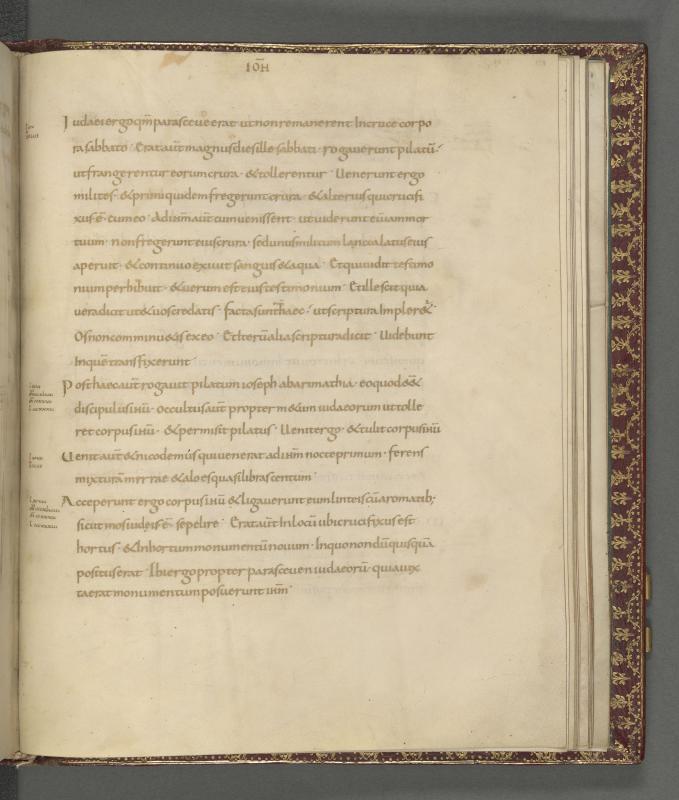 IOH
Iudaei ergo qm̄ parasceue erat ut non remanerent In cruce corpo
ra sabbato · Erat aūt magnus dies ille sabbati · rogauerunt pilatū ·
ut frangerentur eorum crura · & tollerentur · Uenerunt ergo
milites · & primi quidem fregerunt crura · & alterius qui crucifi
xus ē · cum eo · Ad ihm̄ aūt cum uenissent · ut uiderunt eū iam mor
tuum · non fregerunt eius crura · sed unus militum lancea latus eius
aperuit · & continuo exiuit sanguis & aqua · Et qui uidit testimo
nium perhibuit · & uerum est eius testimonium · Et ille scit quia
uera dicit ut & uos credatis · facta sunt haec · ut scriptura Impler&
Os non comminu&is ex eo · Et Iterū alia scriptura dicit · Uidebunt
In quē transfixerunt
Post haec aūt rogauit pilatum ioseph ab arimathia · eo quod e&
discipulus ihū · occultus aūt propter m&um iudaeorum ut tolle
ret corpus ihū · & permisit pilatus · Uenit ergo · & tulit corpus ihū
Uenit aūt & nicodemus qui uenerat ad ihm̄ nocte primum · ferens
mixturam mrrae & aloes quasi libras centum ·
Acceperunt ergo corpus ihū & ligauerunt eum linteis cū aromatib;
sicut mos iudeis ē · sepelire · Erat aūt In locū ubi crucifixus est
hortus · & In hortum monumentū nouum · In quo nondū quisquā
positus erat · Ibi ergo propter parasceuen iudaeorū · quia iux
ta erat monumentum posuerunt ihm̄ ·